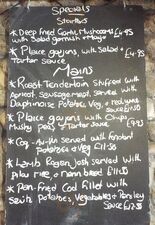 Specials
Starters
* Deep fried Garlic Mushrooms £4.95
with Salad garnish + mayo
* Plaice goujons, with Salad +
Tartar Sauce £4.95
Mains
* Roast Tenderloin Stuffed with
Apricot Sausagemeat, served with
Dauphinoise Potatoe, Veg, + red wine
Sauce
* Plaice goujons with Chips,
Mushy Peas + Tartar Sauce
* Coq-au-Vin served with fondant
Potatoes + Veg £11.50
* Lamb Rogan Josh served with
Pilau rice, + naan bread £11.50
* Pan-fried Cod filled with
Sauté Potatoes, Vegetables + Parsley
Sauce